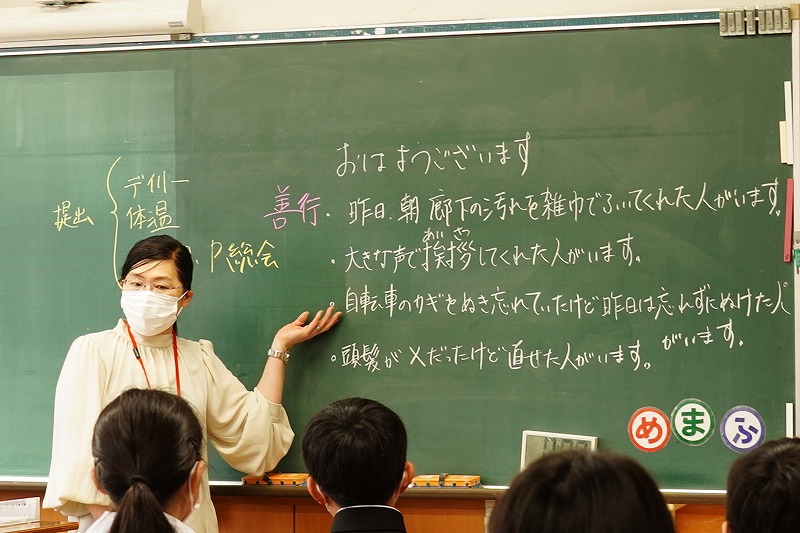 おはようございます
提出
デイリー
体温
P総会
善行
・昨日、朝 廊下の汚れを雑巾でふいてくれた人がいます。
あいさつ
・大きな声で挨拶してくれた人がいます。
・自転車のカギをぬき忘れていたけど昨日は忘れずにぬけた人
がいます。
・頭髪が×だったけど直せた人がいます。
め ま ふ